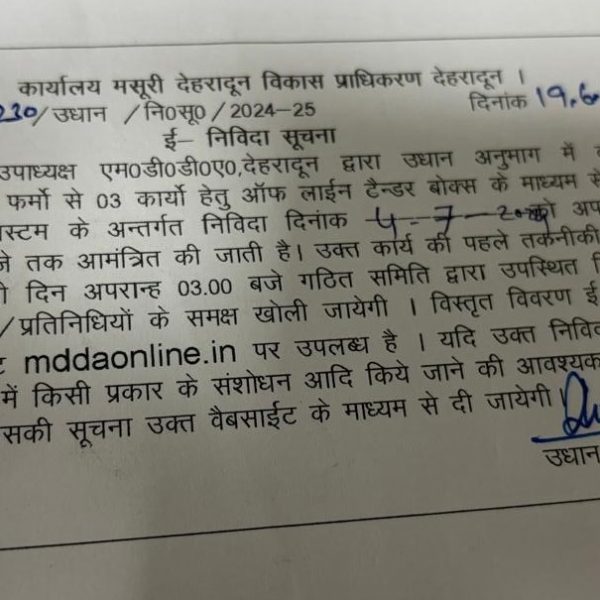 कार्यालय मसूरी देहरादून विकास प्राधिकरण देहरादून ।
230/उधान /नि0सू0/2024-25 दिनांक 19.6.
ई- निविदा सूचना
उपाध्यक्ष एम0डी0डी0ए0,देहरादून द्वारा उधान अनुभाग में
फर्मो से 03 कार्यो हेतु ऑफ लाईन टैन्डर बोक्स के माध्यम से
स्टम के अन्तर्गत निविदा दिनांक 4-7- को अप
जे तक आमंत्रित की जाती है। उक्त कार्य की पहले तकनीकी
दिन अपरान्ह 03.00 बजे गठित समिति द्वारा उपस्थित
/प्रतिनिधियों के समक्ष खोली जायेगी । विस्तृत विवरण ई
mddaonline.in पर उपलब्ध है । यदि उक्त निविद
में किसी प्रकार के संशोधन आदि किये जाने की आवश्यक
सकी सूचना उक्त वैबसाईट के माध्यम से दी जायेगी।
उधान